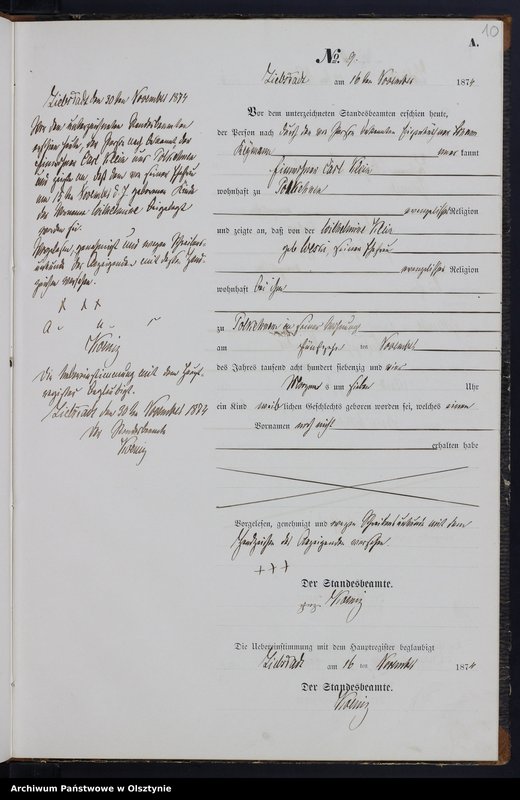 10
A.
No. 9.
am 16ten November 1874
Vor dem unterzeichneten Standesbeamten erschien heute,
der Person nach durch den
kannt
Carl Klein
wohnhaft zu
evangelischer Religion
und zeigte an, daß von der Wilhelmine Klein
geb. seiner Ehefrau
evangelischer Religion
wohnhaft bei ihm
zu in seiner Wohnung
am fünfzehn ten November
des Jahres tausend acht hundert siebenzig und vier
Morgens um sieben Uhr
ein Kind weiblichen Geschlechts geboren worden sei, welches einen
Vornamen noch nicht
erhalten habe
Vorgelesen, genehmigt und wegen Schreibensunkunde mit dem
Handzeichen des Anzeigenden versehen.
+++
Der Standesbeamte.
Koenig
Die Uebereinstimmung mit dem Hauptregister beglaubigt
am 16 ten November 1874
Der Standesbeamte.
Koenig
den 30ten November 1874
Vor dem unterzeichneten Standesbeamten
erschien heute, der Person nach bekannt, der
Carl Klein aus
und zeigte an, daß dem von seiner Ehefrau
am 15ten November d. J. geborenen Kinde
der Vorname Wilhelmine beigelegt
worden sei.
Vorgelesen, genehmigt und wegen Schreibens-
unkunde des Anzeigenden mit dessen Hand-
zeichen versehen.
+ + +
Koenig
Die Uebereinstimmung mit dem Haupt-
register beglaubigt.
den 30ten November 1874
Der Standesbeamte
Koenig
Archiwum Państwowe w Olsztynie